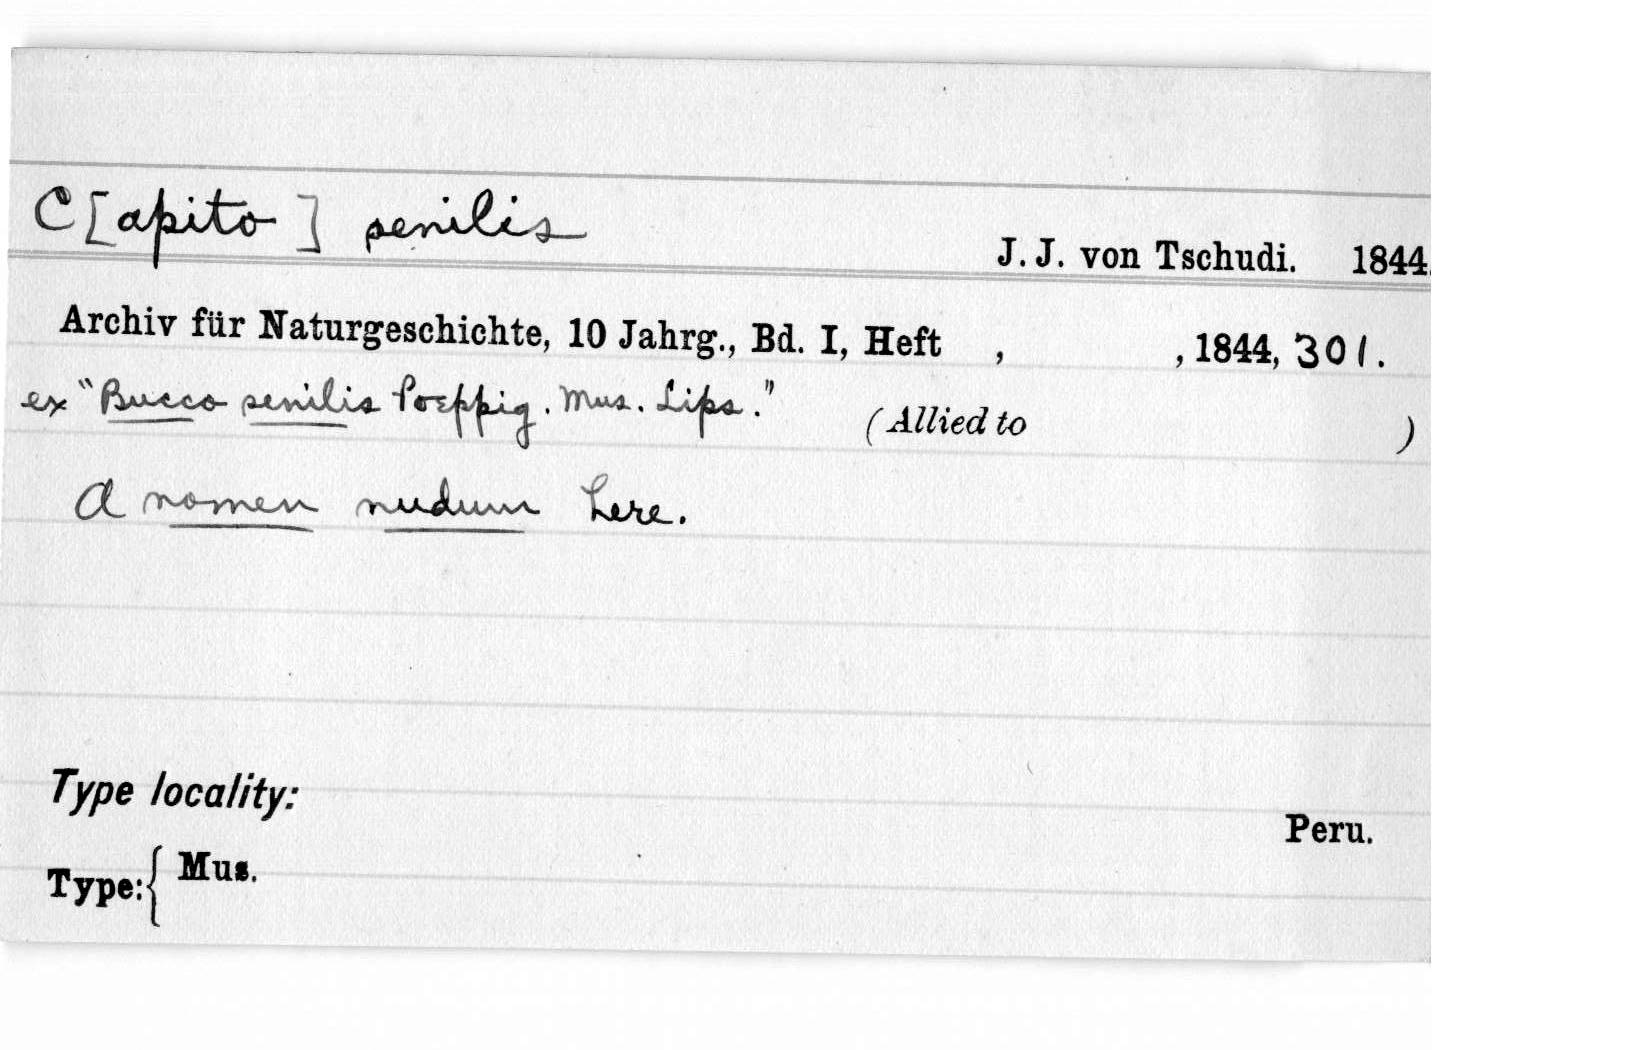 C[apito] senilis
J. J. von Tschudi. 1844.
Archiv für Naturgeschichte, 10 Jahrg., Bd. I, Heft , , 1844, 301.
ex "Bucco senilis Poeppig. Mus. Lips." (Allied to )
A nomen nudum here.
Type locality:
Peru.
Type: { Mus.